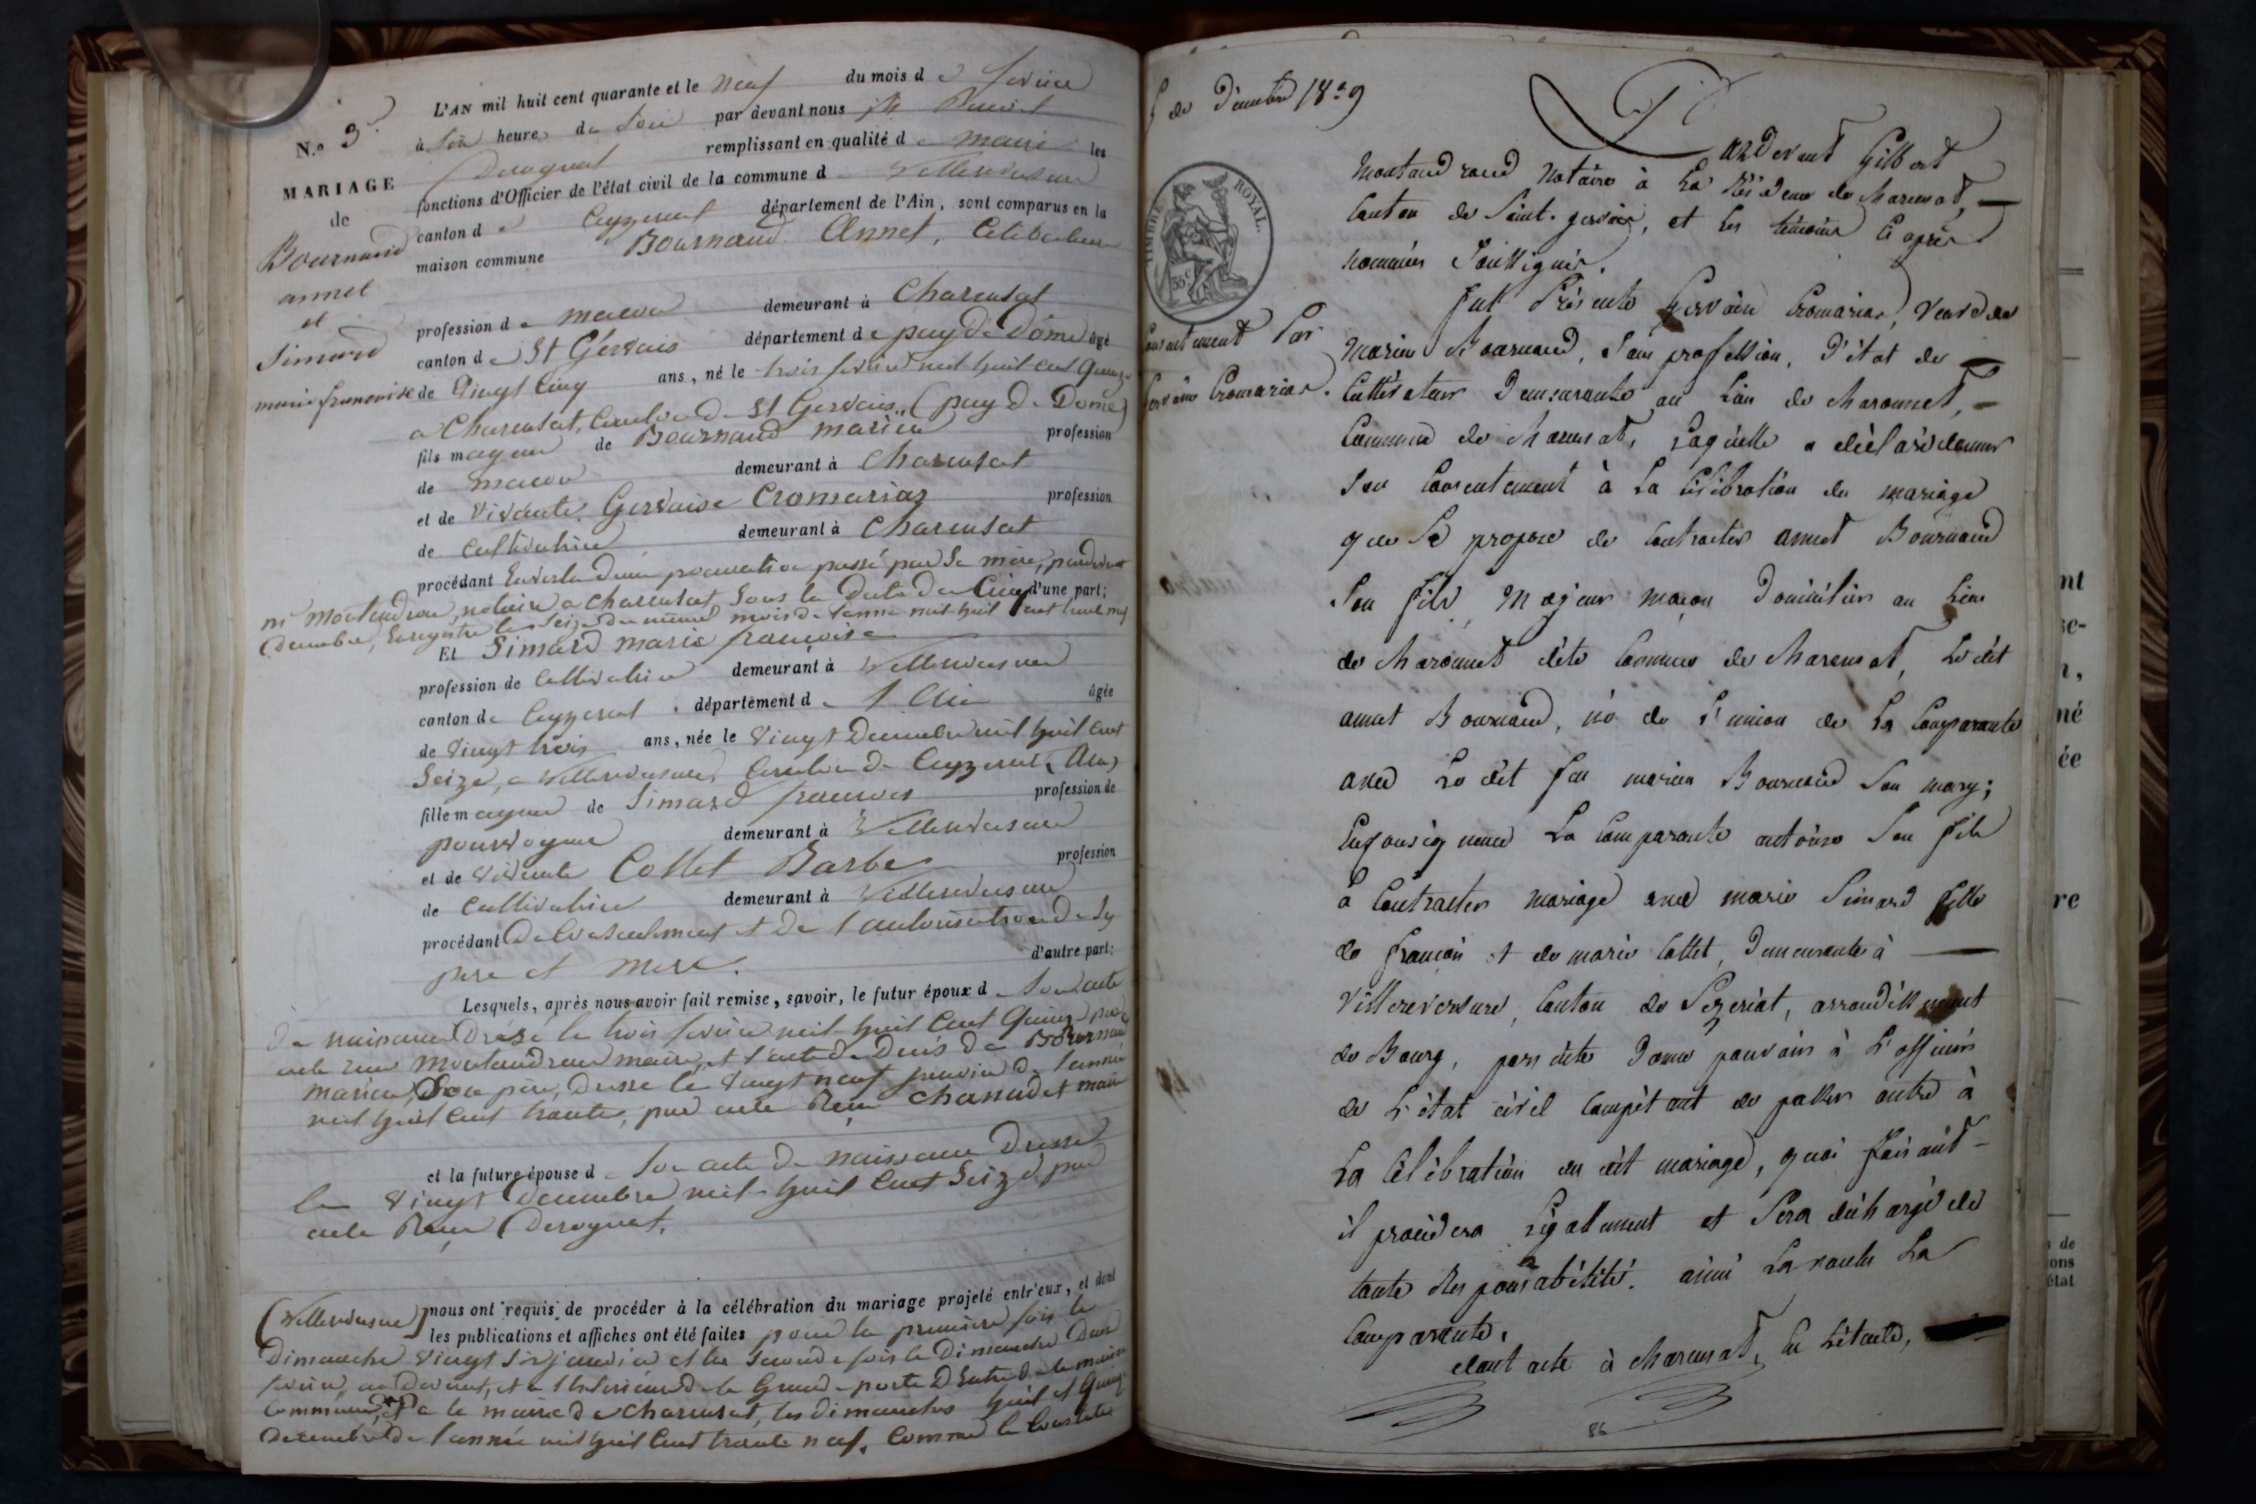 N.º 3
MARIAGE
de
Bournaud
annet
et
Simard
marie francoise
L'AN mil huit cent quarante et le neuf du mois de fevrier
à six heures du soir par devant nous
remplissant en qualité de maire les
fonctions d'Officier de l'état civil de la commune de Villereversure
canton de Ceyzeriat département de l'Ain, sont comparus en la
maison commune Bournaud Annet, Celibataire
profession de macon demeurant à Charensat
canton de St Gervais département de puy de Dôme âgé
de Vingt Cinq ans, né le trois fevrier mil huit cent quinze
a Charensat, Canton de St Gervais, (puy de Dome)
fils majeur de Bournaud marien profession
de macon demeurant à Charensat
et de vivante Gervaise Cromarias profession
de cultivatrice demeurant à Charensat
procédant En vertu d'une procuration passé par Sa mère, pardevant d'une part;
me Montandraud, notaire a Charensat, Sous la Date du Cinq
Decembre, Enregistré le Seize du meme mois de l'année mil huit cent trente neuf
Et Simard marie françoise
profession de cultivatrice demeurant à Villereversure
canton de Ceyzeriat, département de l'Ain âgée
de vingt trois ans, née le Vingt Decembre mil huit cent
Seize, a Villereversure Canton de Ceyzeriat, (Ain)
fille majeure de Simard francois profession de
demeurant à Villereversure
et de vivante Collet Barbe profession
de cultivatrice demeurant à Villereversure
procédant Du Consentement et De l'autorisation de Sy
pere et mere. d'autre part;
Lesquels, après nous avoir fait remise, savoir, le futur époux de Son acte
De naissance Dressé le trois fevrier mil huit Cent Quinze par
acte reçu Montandraud maire, et l'acte de Decès de Bournaud
marien, Son père, Dressé le Vingt neuf janvier de l'année
mil huit cent trente, par acte Reçu Chanudet maire
et la future épouse de Son acte De naissance Dressé
le Vingt Decembre mil huit Cent Seize, par
acte Reçu Deroguat.
(Villereversure) nous ont requis de procéder à la célébration du mariage projeté entr'eux, et dont
les publications et affiches ont été faites pour la première fois le
Dimanche Vingt Six janvier et la Seconde fois le Dimanche Deux
fevrier, au Devant, et a l'Extérieur de la Grande porte D'Entrée de la maison
Commune, et a la mairie de Charensat, les dimanches huit et Quinze
Decembre de l'année mil huit Cent trente neuf, Comme le Constate
5 de Décembre 1839
TIMBRE ROYAL.
35 C
Consentement Par
Gervaise Cromarias.
Pardevant Gilbert
Montandraud Notaire à La Résidence de Charensat,
Canton de Saint-gervais, et les témoins Ci après
nommés Soussignés.
fut Présente Gervaise Cromarias, veuve de
Marien Bournaud, Sans profession, D'état de
Cultivateur Demeurante au Lieu de Charonnet,
Commune de Charensat, Laquelle a déclaré donner
Son Consentement à La Célébration du mariage
que Se propose de Contracter annet Bournaud
Son fils, Majeur maçon Domicilier au Lieu
de Charonnet dite Commune de Charensat, Le dit
annet Bournaud, né de L'union de La Comparante
avec Le dit feu marien Bournaud Son mary;
Enconséquence La Comparante autorise Son fils
à Contracter Mariage avec marie Simard fille
de françois et de marie Collet, Demeurante à
Villereversure, Canton de Sezeriat, arrondissement
de Bourg, pers dite Donne pouvoir à L'officier
de L'état civil Compétant de passer outre à
La Célébration du dit mariage, quoi faisant
il procédera Légalement et Sera déchargé de
toute Responsabélité. ainsi La voulu La
Comparante.
dont acte à Charensat, En L'étude,
86
nt
se-
n,
né
ée
re
de
ons
état